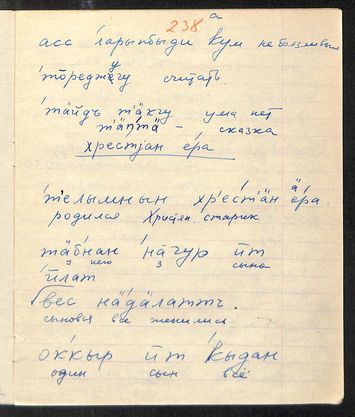 238
асс ӏарыпбыди кум не болзливый
тӧреджегу считать
тӓйдъ тӓкгу ума нет
тӓптӓ – сказка
хрестjан ера
телымнын хрестӓн ӓра
родился Христян старик
тӓбнан нагур ӣт
у него 3 сына
ӣлат
вес нӓдӓлаттъ.
сыновья все женились
оккыр ӣт кыдан
один сын всё